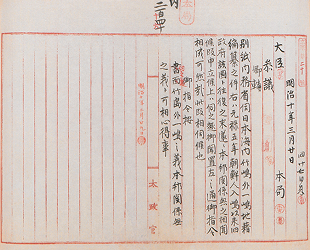 明治十年三月廿日
大臣 本局
参議
卿輔
別紙内務省伺日本海内竹嶋外一嶋地籍
編纂之件右ハ元禄五年朝鮮人入嶋以来旧
政府該国ト往復之末遂ニ本邦関係無之相聞
候段申立候上ハ伺之趣御聞置左之通御指令
相成可然哉此段相伺候也
御指令按
書面竹島外一嶋之義本邦関係無
之義ト可相心得事
太政官